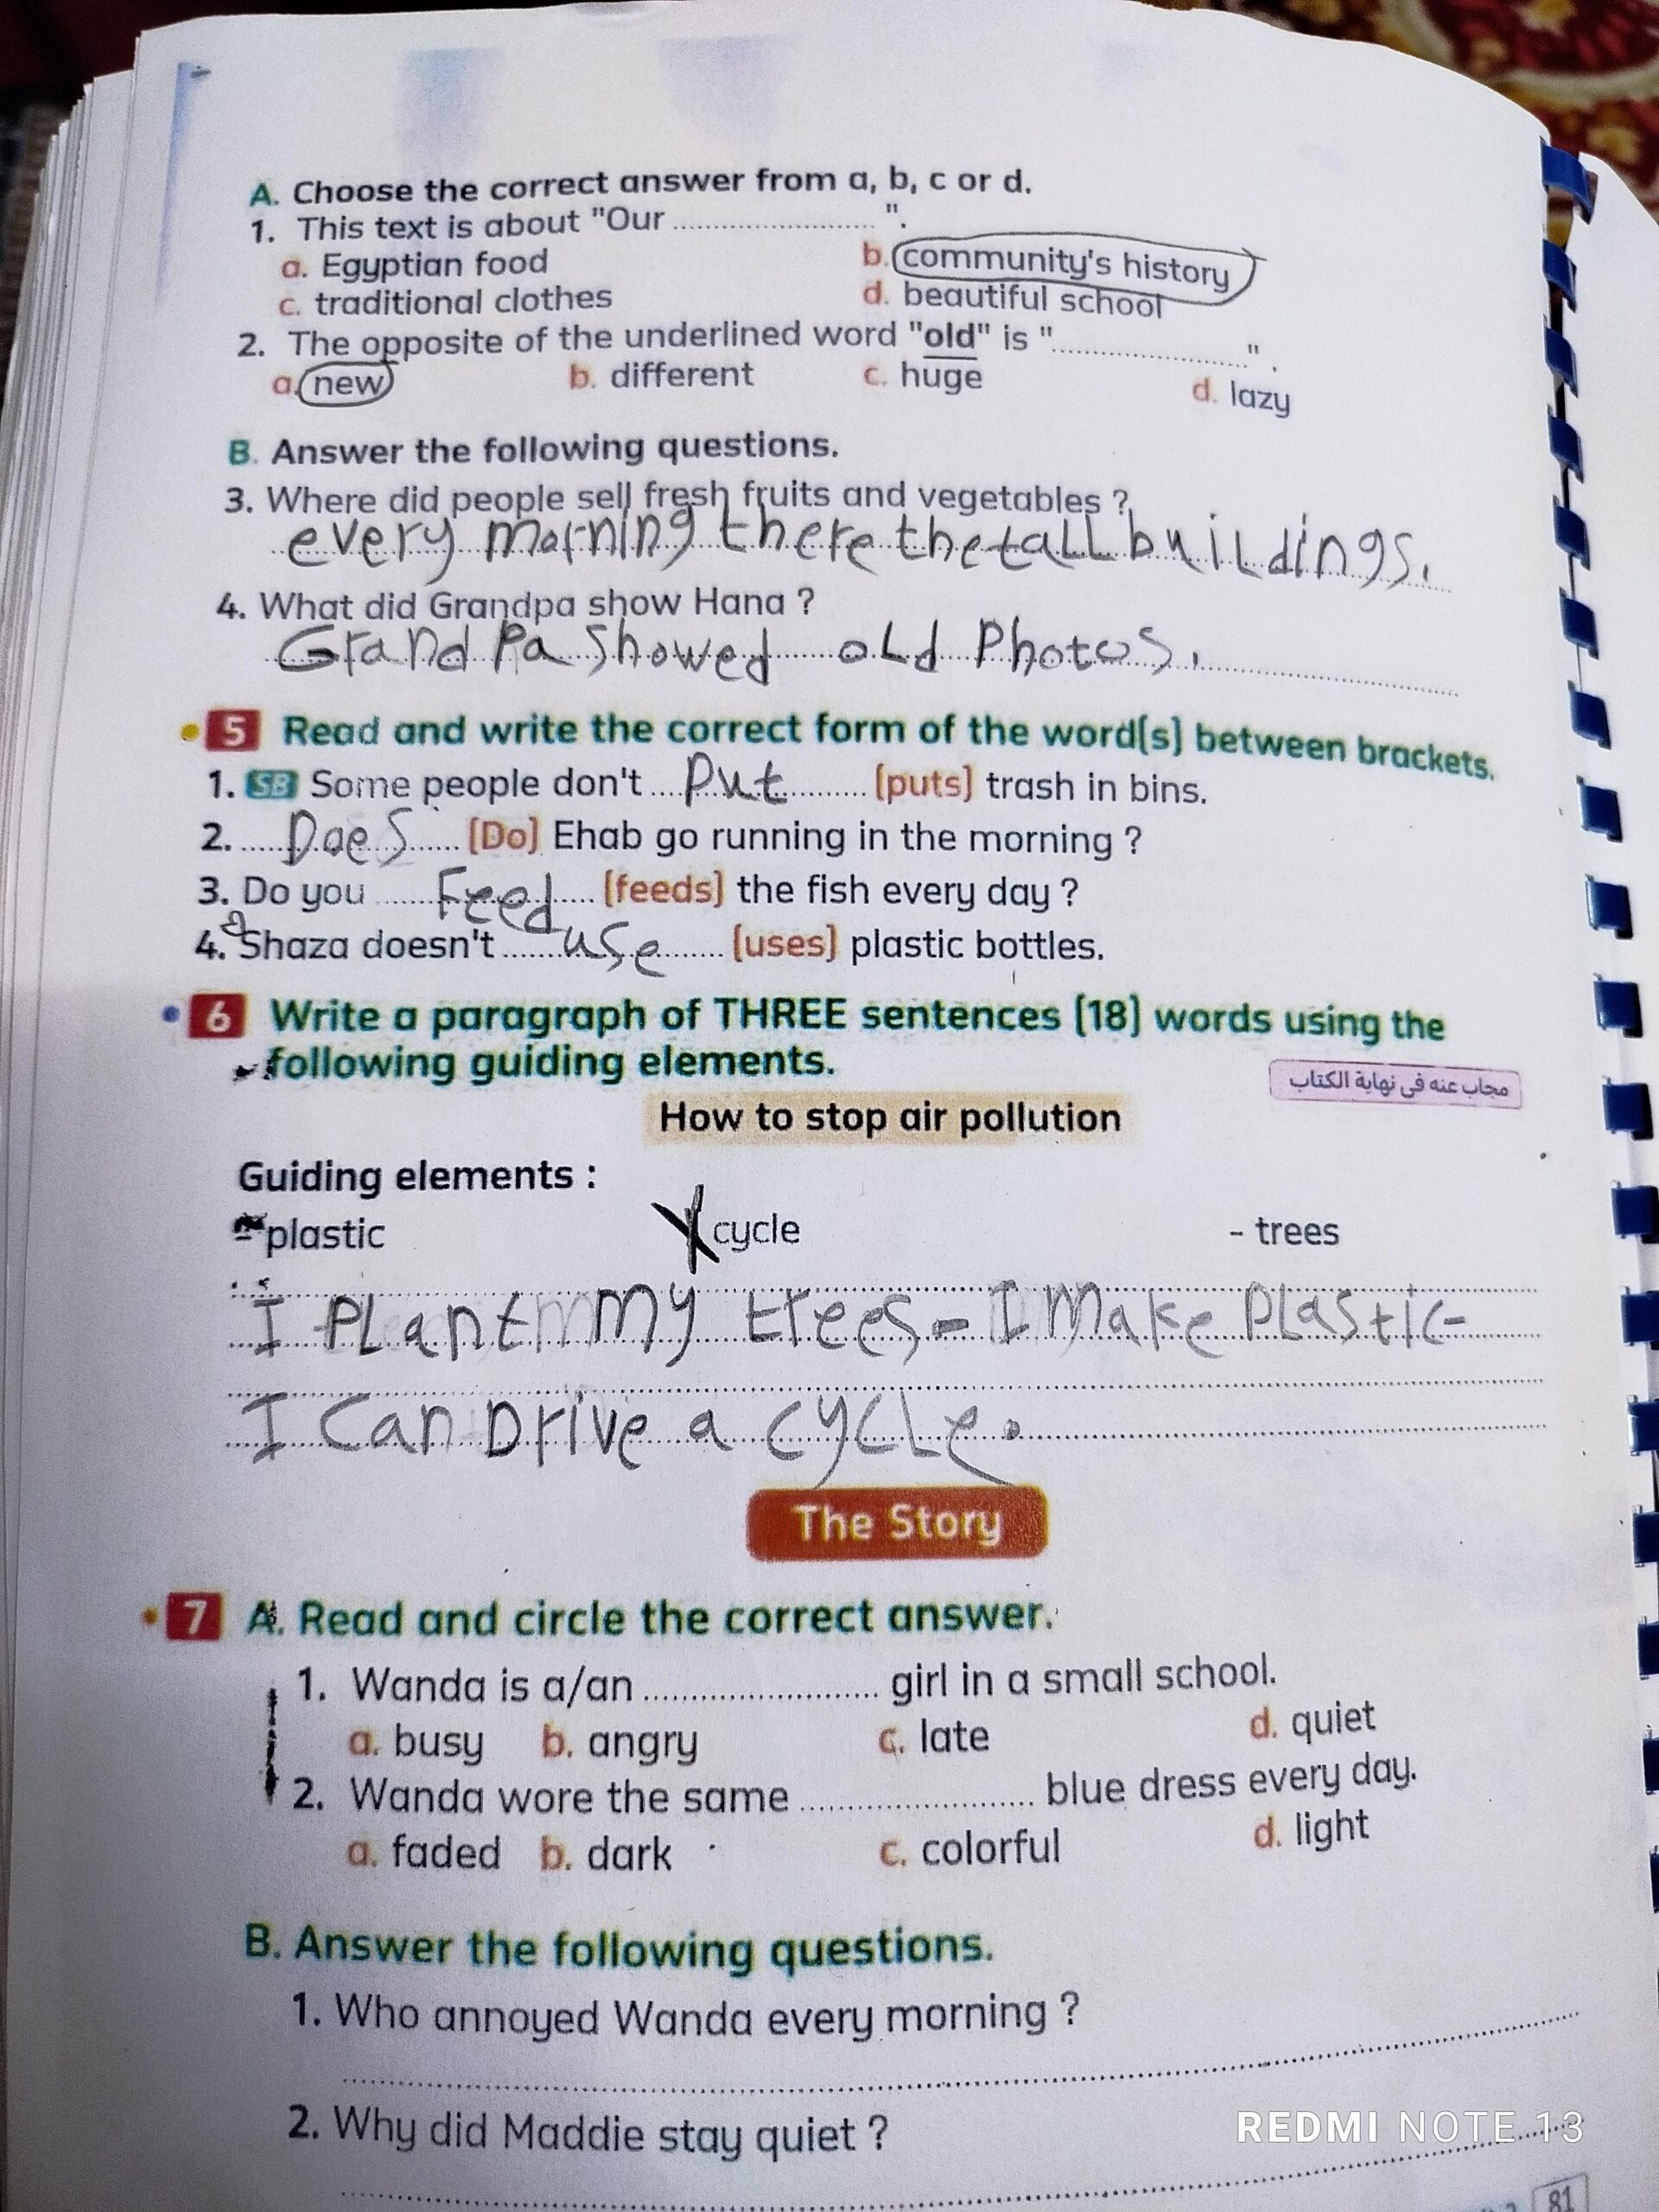 A. Choose the correct answer from a, b, c or d.
1. This text is about "Our ........................ ".
a. Egyptian food b. community's history
c. traditional clothes d. beautiful school
2. The opposite of the underlined word "old" is "........................".
a. new b. different c. huge d. lazy
B. Answer the following questions.
3. Where did people sell fresh fruits and vegetables ?
every morning there the tall buildings.
4. What did Grandpa show Hana ?
Grandpa showed old Photos.
5 Read and write the correct form of the word(s) between brackets.
1. SB Some people don't put (puts) trash in bins.
2. Does (Do) Ehab go running in the morning ?
3. Do you Feed (feeds) the fish every day ?
4. Shaza doesn't use (uses) plastic bottles.
6 Write a paragraph of THREE sentences (18) words using the
following guiding elements.
مجاب عنه فى نهاية الكتاب
How to stop air pollution
Guiding elements :
plastic cycle - trees
I Plant my trees - I Make Plastic -
I Can Drive a cycle.
The Story
7 A. Read and circle the correct answer.
1. Wanda is a/an ........................ girl in a small school.
a. busy b. angry c. late d. quiet
2. Wanda wore the same ........................ blue dress every day.
a. faded b. dark c. colorful d. light
B. Answer the following questions.
1. Who annoyed Wanda every morning ?
2. Why did Maddie stay quiet ?
REDMI NOTE 13
81